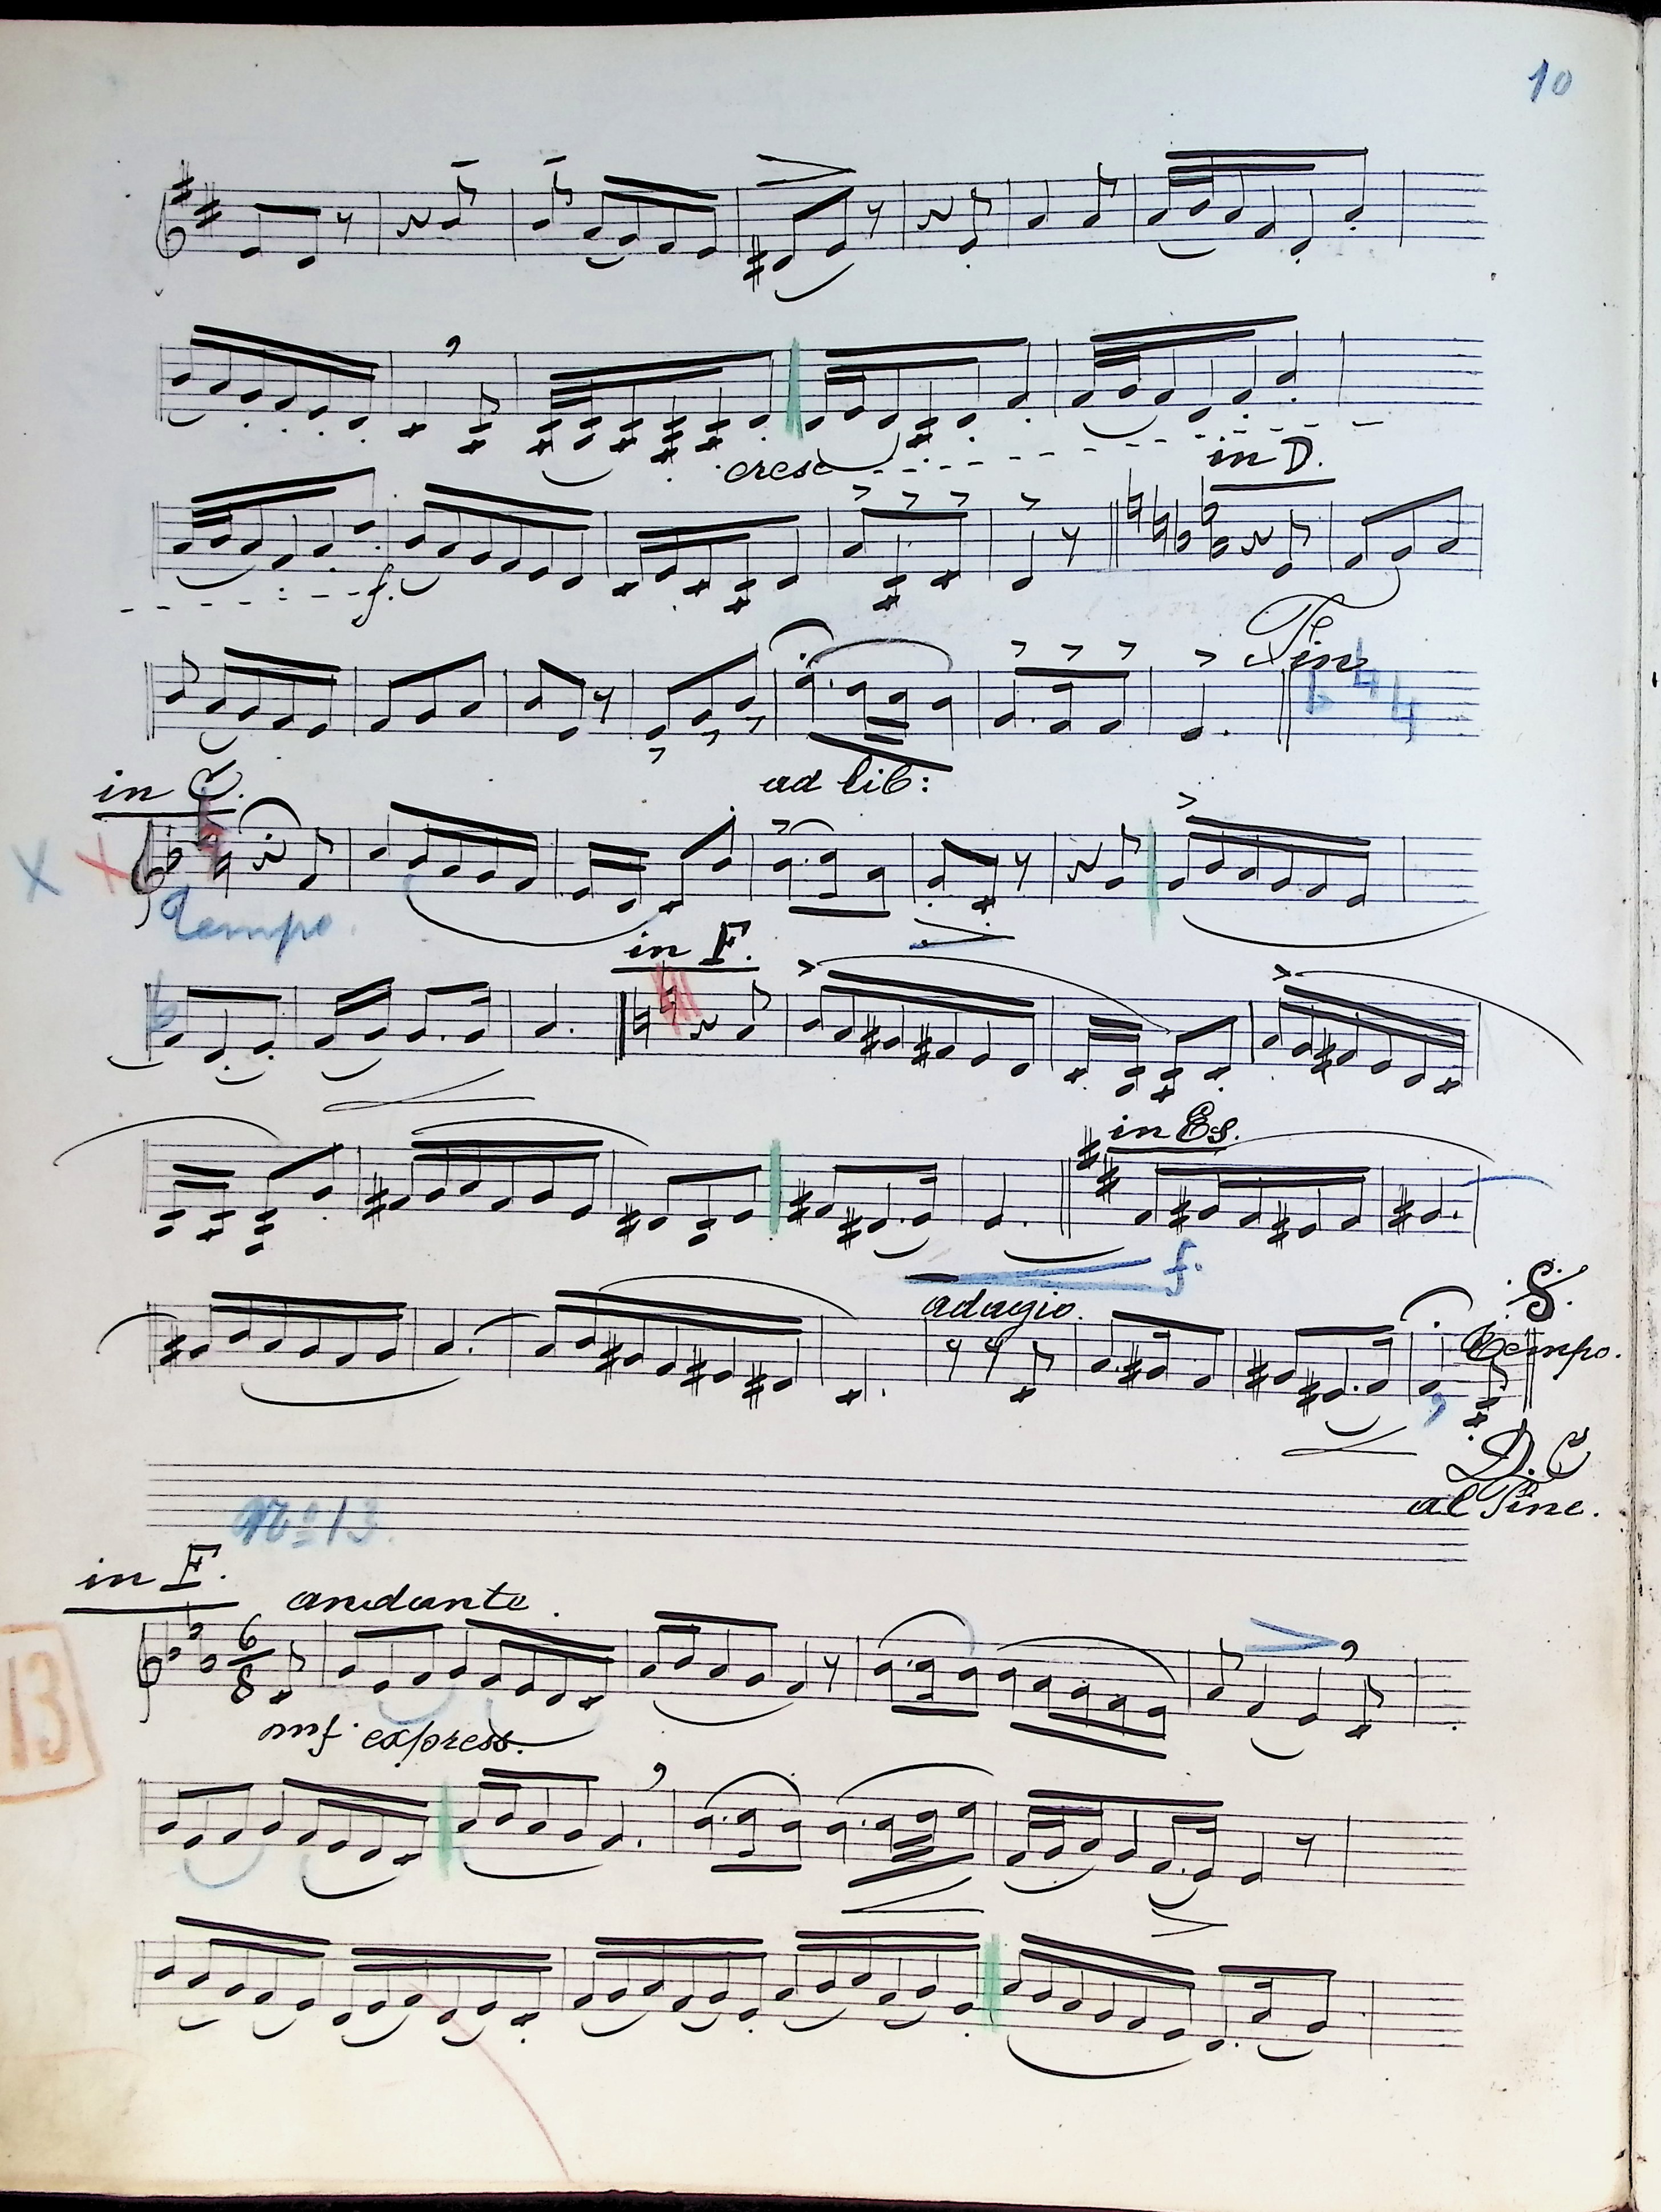 10
cresc
in D.
f.
Fin
ad lib:
in C.
x x
Tempo.
in F.
in Es.
f.
adagio.
Tempo.
D.C
al Fine.
No 13.
in F.
andante.
9
8
mf. express.
13